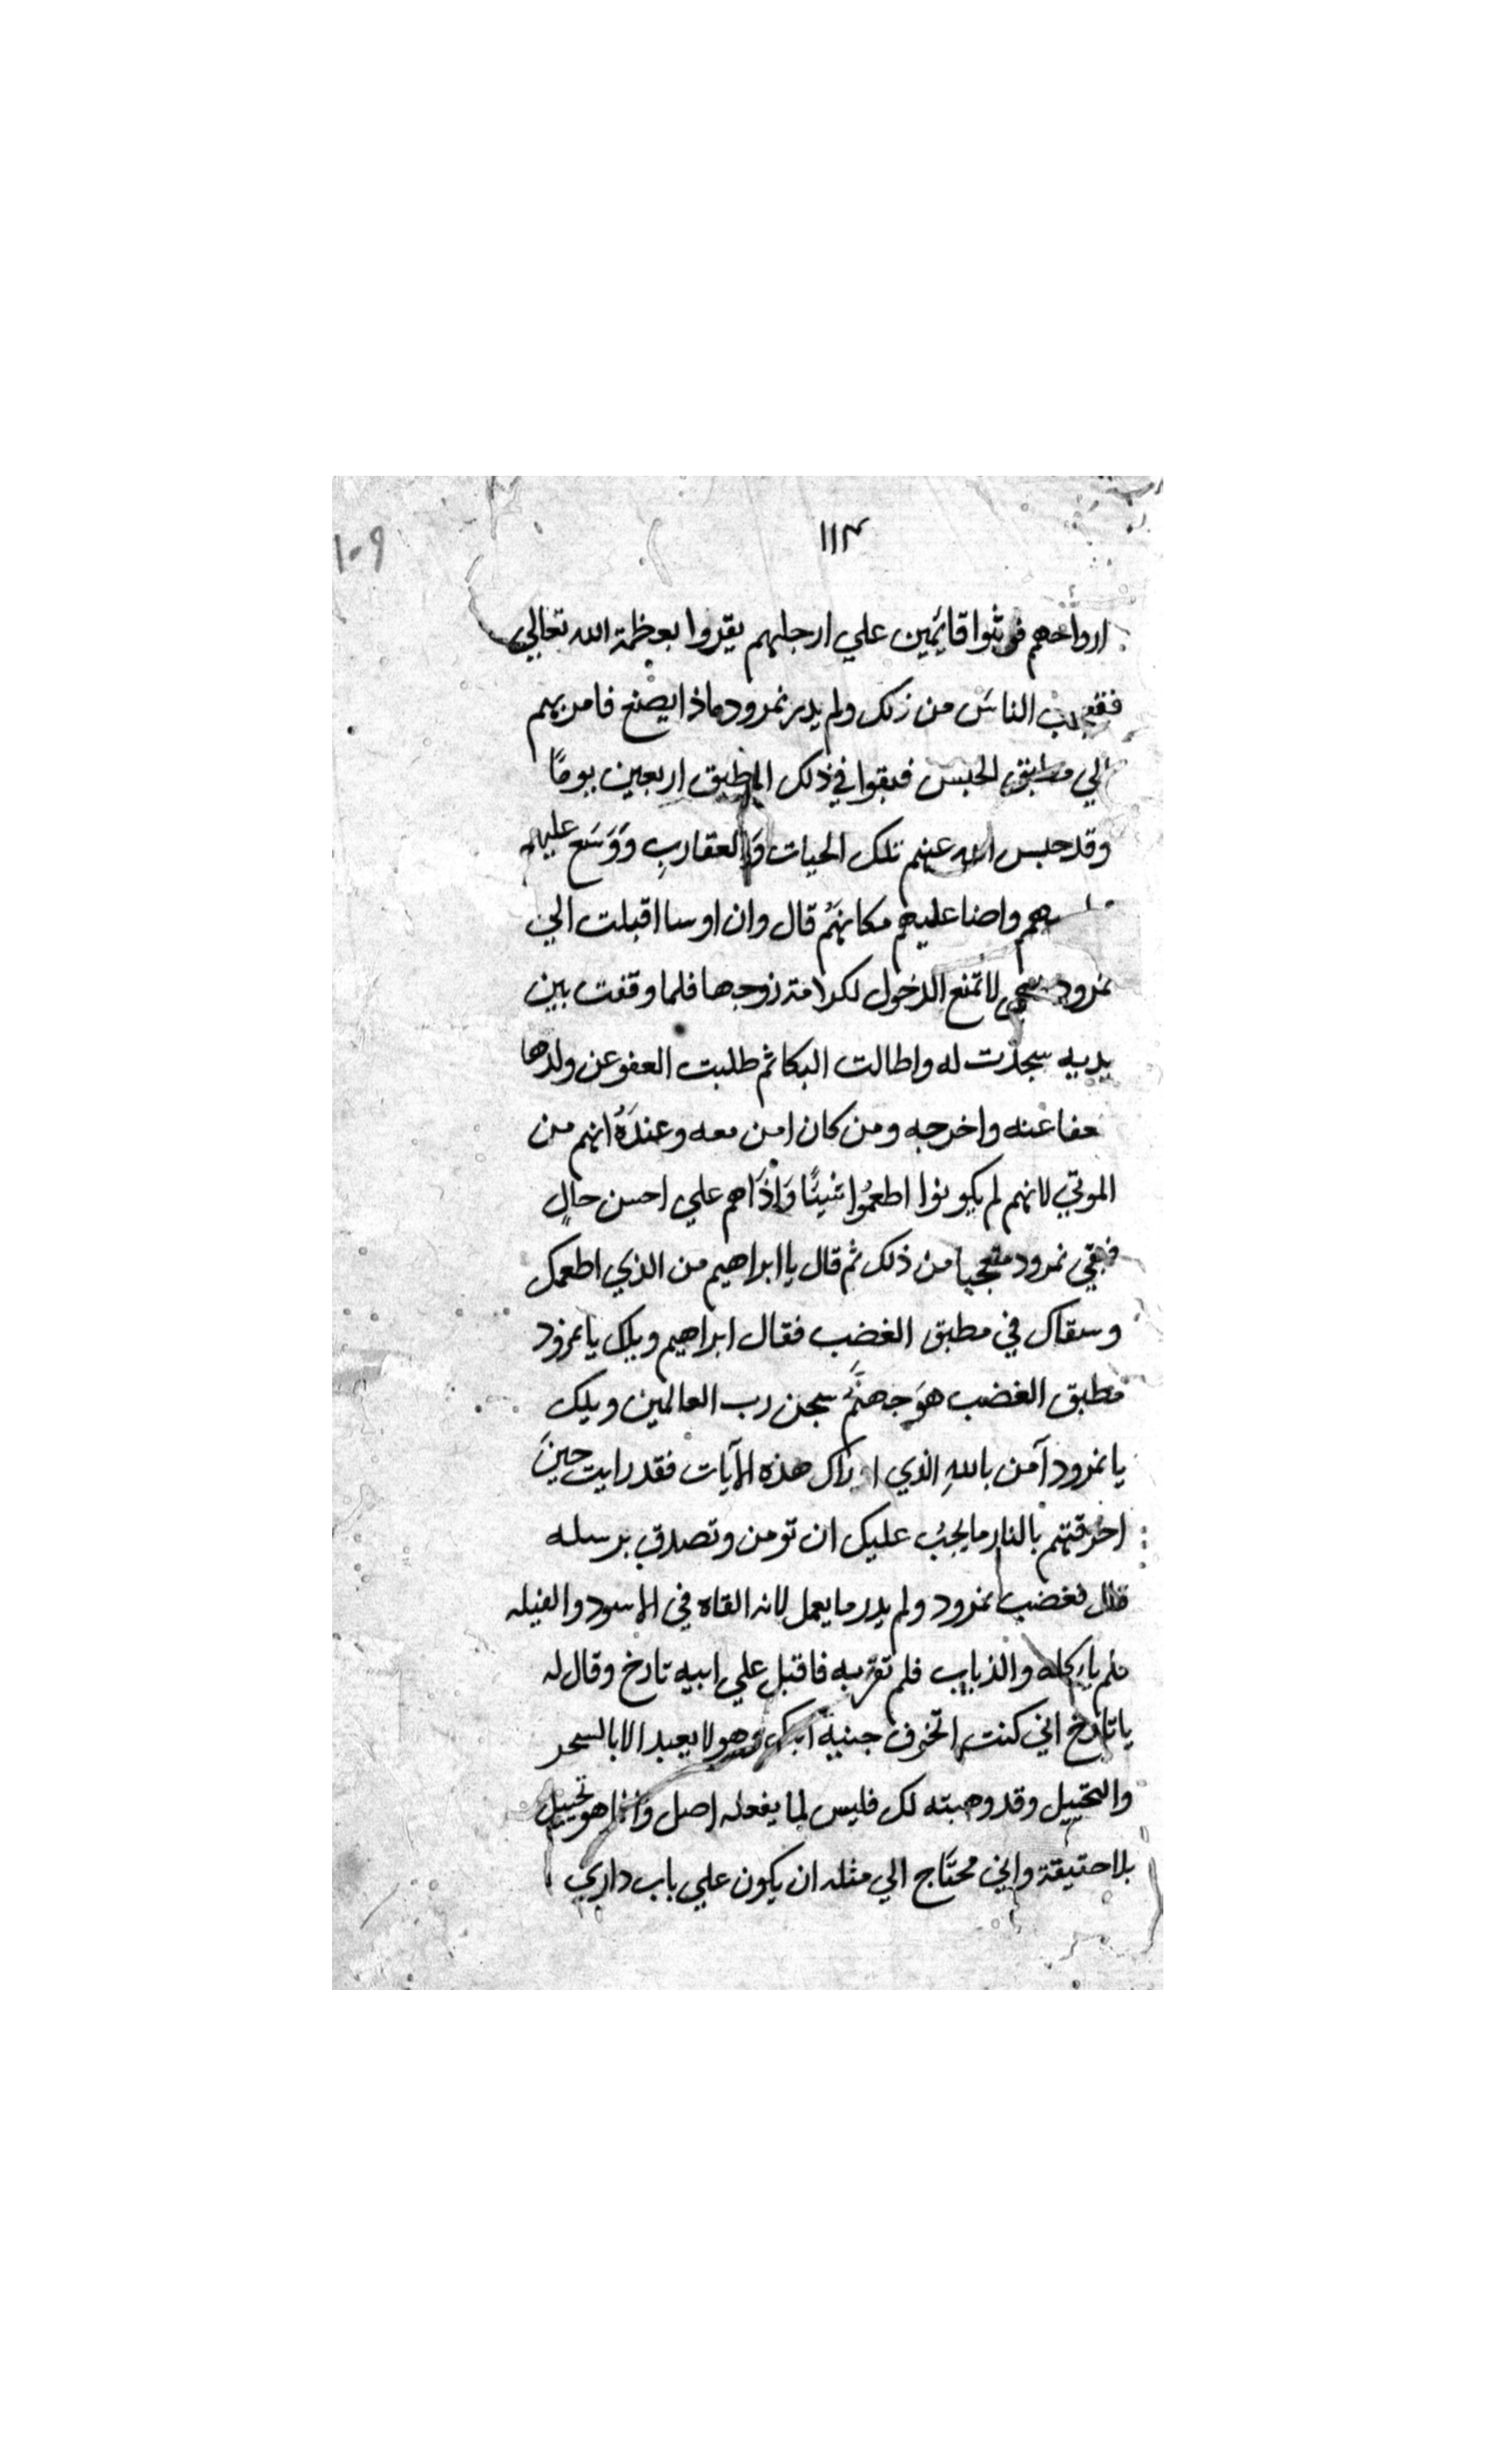 ١١٣
١٠٩
ارواحهم فوثبوا قايمين علي ارجلهم يقروا بعظمة الله تعالي
فتعجب الناسَ من ذلك ولم يدر نمرود ماذا يصنع فامر بهم
الي مطبق الحبس فبقوا في ذلك المطبق اربعين يومًا
وقد حبس الله عنهم تلك الحيات وَالعقاربِ وَوَسَع عليهم
واضا عليهم مكانهَمُ قال وان اوسا اقبلت الي
نمرود لا تمنع الدخول لكرامة زوجها فلما وقفت بين
يديه سجدت له واطالت البكا ثم طلبت العفو عن ولدها
فعفا عنه واخرجه ومن كان امن معه وعندَهُ انهم من
الموتي لانهم لم يكونوا اطعمُوا شيئًا وَاذَاهم علي احسن حالٍ
فبقي نمرود متعجبا من ذلك ثم قال يا ابراهيم من الذي اطعمك
وسقاك في مطبق الغضب فقال ابراهيم ويلك يا نمرود
مطبق الغضب هوَ جهنَّمُ سجن رب العالمين ويلك
يا نمرود آمن باللهِ الذي اراك هذه الآيات فقد رايت حينَ
احُرقتهم بالنار ما يجبُ عليك ان تومن وتصدق برسله
قال فغضب نمرود ولم يدر ما يعمل لانه القاه في الاسود والفيله
فلم ياكله والذياب فلم تقربه فاقبل علي ابيه تارخ وقال له
يا تارخ اني كنت اتخوف جنية ابنك وهو لا يعبد الا بالسحر
والتخييل وقد وهبته لك فليس لما يفعله اصل وانما هو تخييل
بلا حقيقة واني محتَاج الي مثله ان يكون علي باب داري